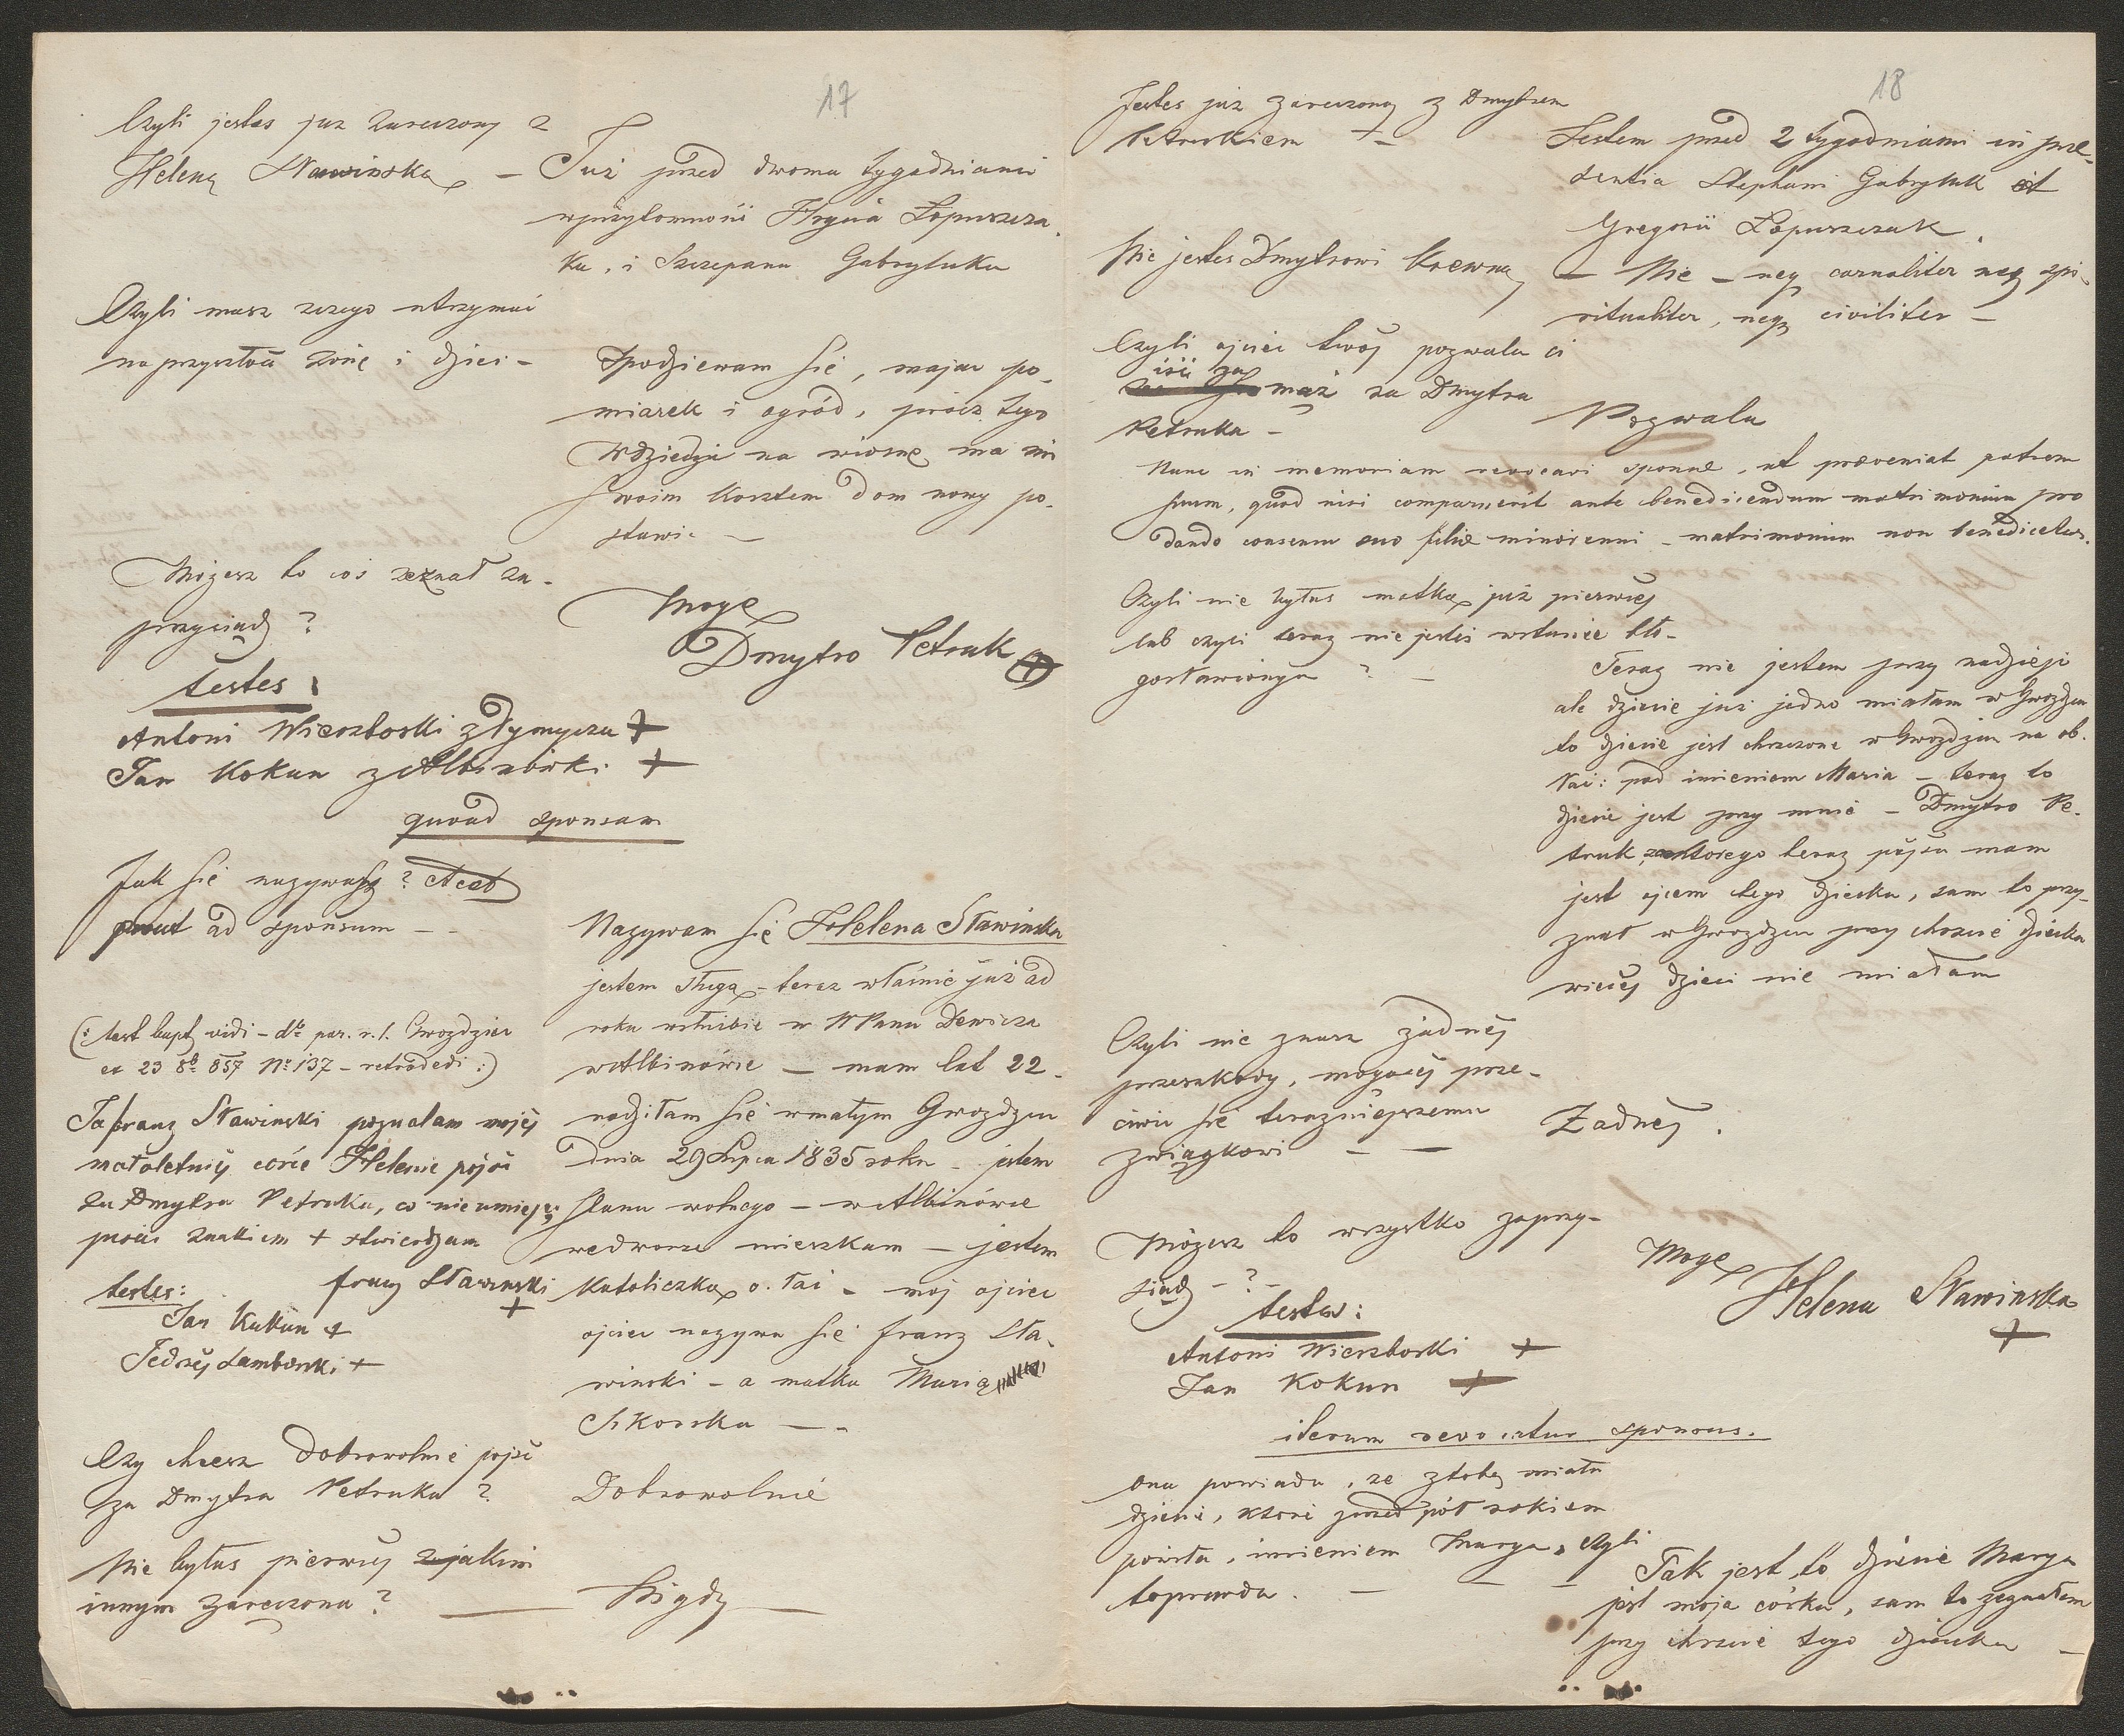 17
Czyli jestes juz zaręczony z
Heleną Sławinską –
Juz przed dwoma tygodniami
w przytomności Hrycia Łopuszcza-
ka, i Szczepana Gabryluka
Czyli masz czego utrzymać
na przyszłość żonę i dzieci –
Spodziewam się, mając po-
miarek i ogród, prócz tego
na wiosnę ma mi
swoim kosztem dom nowy po-
stawić –
Możesz to coś zeznał za-
przysiądz ?
Mogę
Dmytro Petruk +
testes :
Antoni Wierzborski z Tymycza +
Jan Kokun z Albinówki +
quoad sponsam
Jak się nazywasz ?
prout ad sponsum – –
Nazywam się Helena Sławinska
jestem sługą – teraz właśnie już od
roku w służbie u WPana Dewicza
w Albinówce – mam lat 22 –
rodziłam się w małym Gwozdzcu
dnia 29 Lipca 1835 roku – jestem
stanu wolnego – w Albinówce
we dworze mieszkam – jestem
katoliczką o. łać – moj ojciec
ojciec nazywa się franz Sła-
winski – a matka Maria
Sikorska – –
(: test bapt vidi – dto par. r. l. Gwozdziec
et 23 8b 857 No 137 – retrodedi :)
Ja franz Sławinski pozwalam mojéj
małoletniéj córce Helenie pójść
za Dmytra Petruka, co nieumiejąc
pisać znakiem + stwierdzam
franz Sławinski
+
testes:
Jan Kukun +
Jedrzéj Lamborski +
Czy chcesz dobrowolnie pojść
za Dmytra Petruka ?
Dobrowolnie
Nie byłas pierwéj z jakim
innym zaręczona ? –
Nigdy –
18
Jestes już zaręczoną z Dmytrem
Petrukiem –
Jestem przed 2 tygodniami in prae-
sentia Stephani Gabryluk et
Gregorii Łopuszczak .
Nie jestes Dmytrowi krewną
– Nie – neq carnaliter neq spi-
ritualiter, neq civiliter –
Czyli ojciec twój pozwala ci
iść za
mąż za Dmytra
Petruka –
Pozwala
Nunc in memoriam revocavi sponsae, ut praeveniat patrem
suum, quod nisi comparuerit ante benedicendum matrimonium pro
dando consensu suo filiae minorenni – matrimonium non benedicetur.
Czyli nie byłas matką już pierwéj
lub czyli teraz nie jesteś w stanie bło-
gosławionym ? –
Teraz nie jestem przy nadzieji
ale dziecie już jedno miałam w Gwozdzcu
to dziecie jest chrzczone w Gwozdzcu na ob.
łać: pod imieniem Maria – teraz to
dziecie jest przy mnie – Dmytro Pe-
truk za ktorego teraz pójść mam
jest ojcem tego dziecka, sam to przy-
znał w Gwozdzcu przy chrzcie dziecka
więcéj dzieci nie miałam
Czyli nie znasz żadnéj
przeszkody, mogącéj prze-
ciwić się terazniejszemu
związkowi – –
Żadnéj .
Możesz to wszystko zaprzy-
siądz – ? –
Mogę
Helena Sławinska
+
testes :
Antoni Wierzborski +
Jan Kokun +
iterum revocatur sponsus.
ona powiada, ze z tobą miała
dziecie, które przed pół rokiem
powiła, imieniem Marya, czyli
to prawda . – – –
Tak jest, to dziecie Marya
jest moja córka, sam to zeznałem
przy chrzcie tego dziecka –